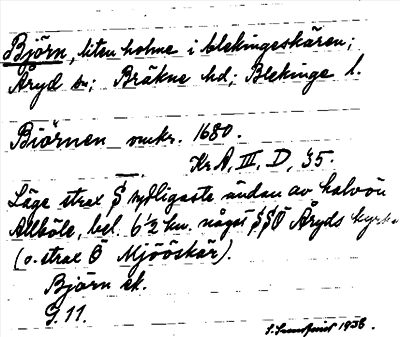 Björn, liten holme i blekingeskären;
Åryd sn; Bräkne hd; Blekinge l.
Biörnen omkr. 1680.
Kr A, III, D, 35.
Läge strax S sydligaste ändan av halvön
Allhöle, bel. 6½ km. något SSÖ Åryds kyrka
(o. strax Ö Mjööskär).
Björn ek.
G. 11.
1938.